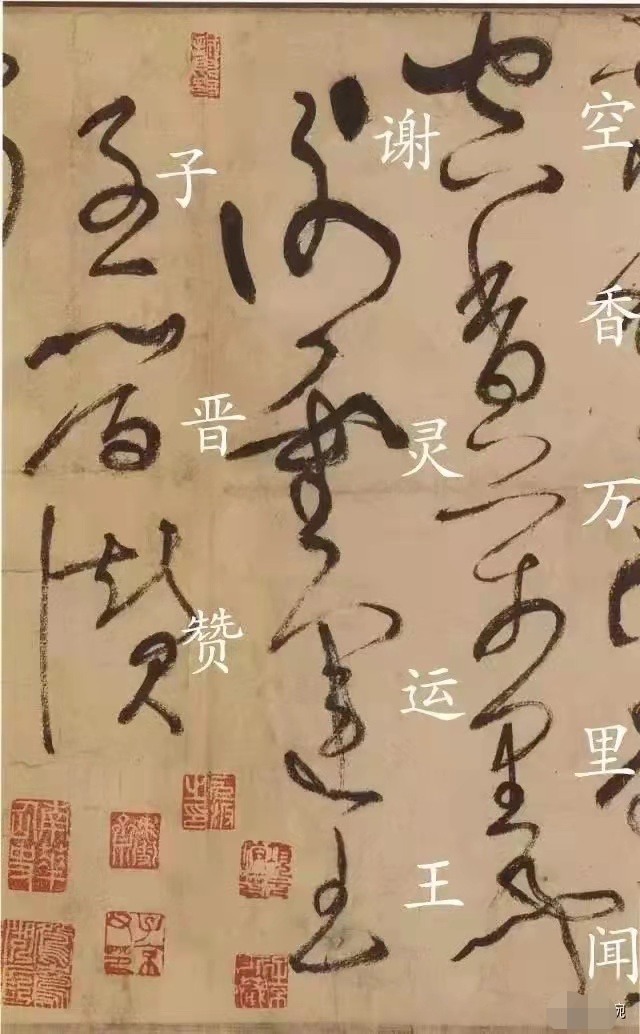 空香万里闻
谢灵运王
子晋赞